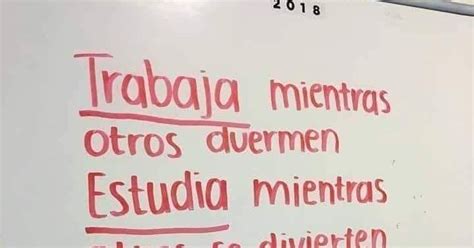 2018
Trabaja mientras
otros duermen
Estudia mientras
otros se divierten